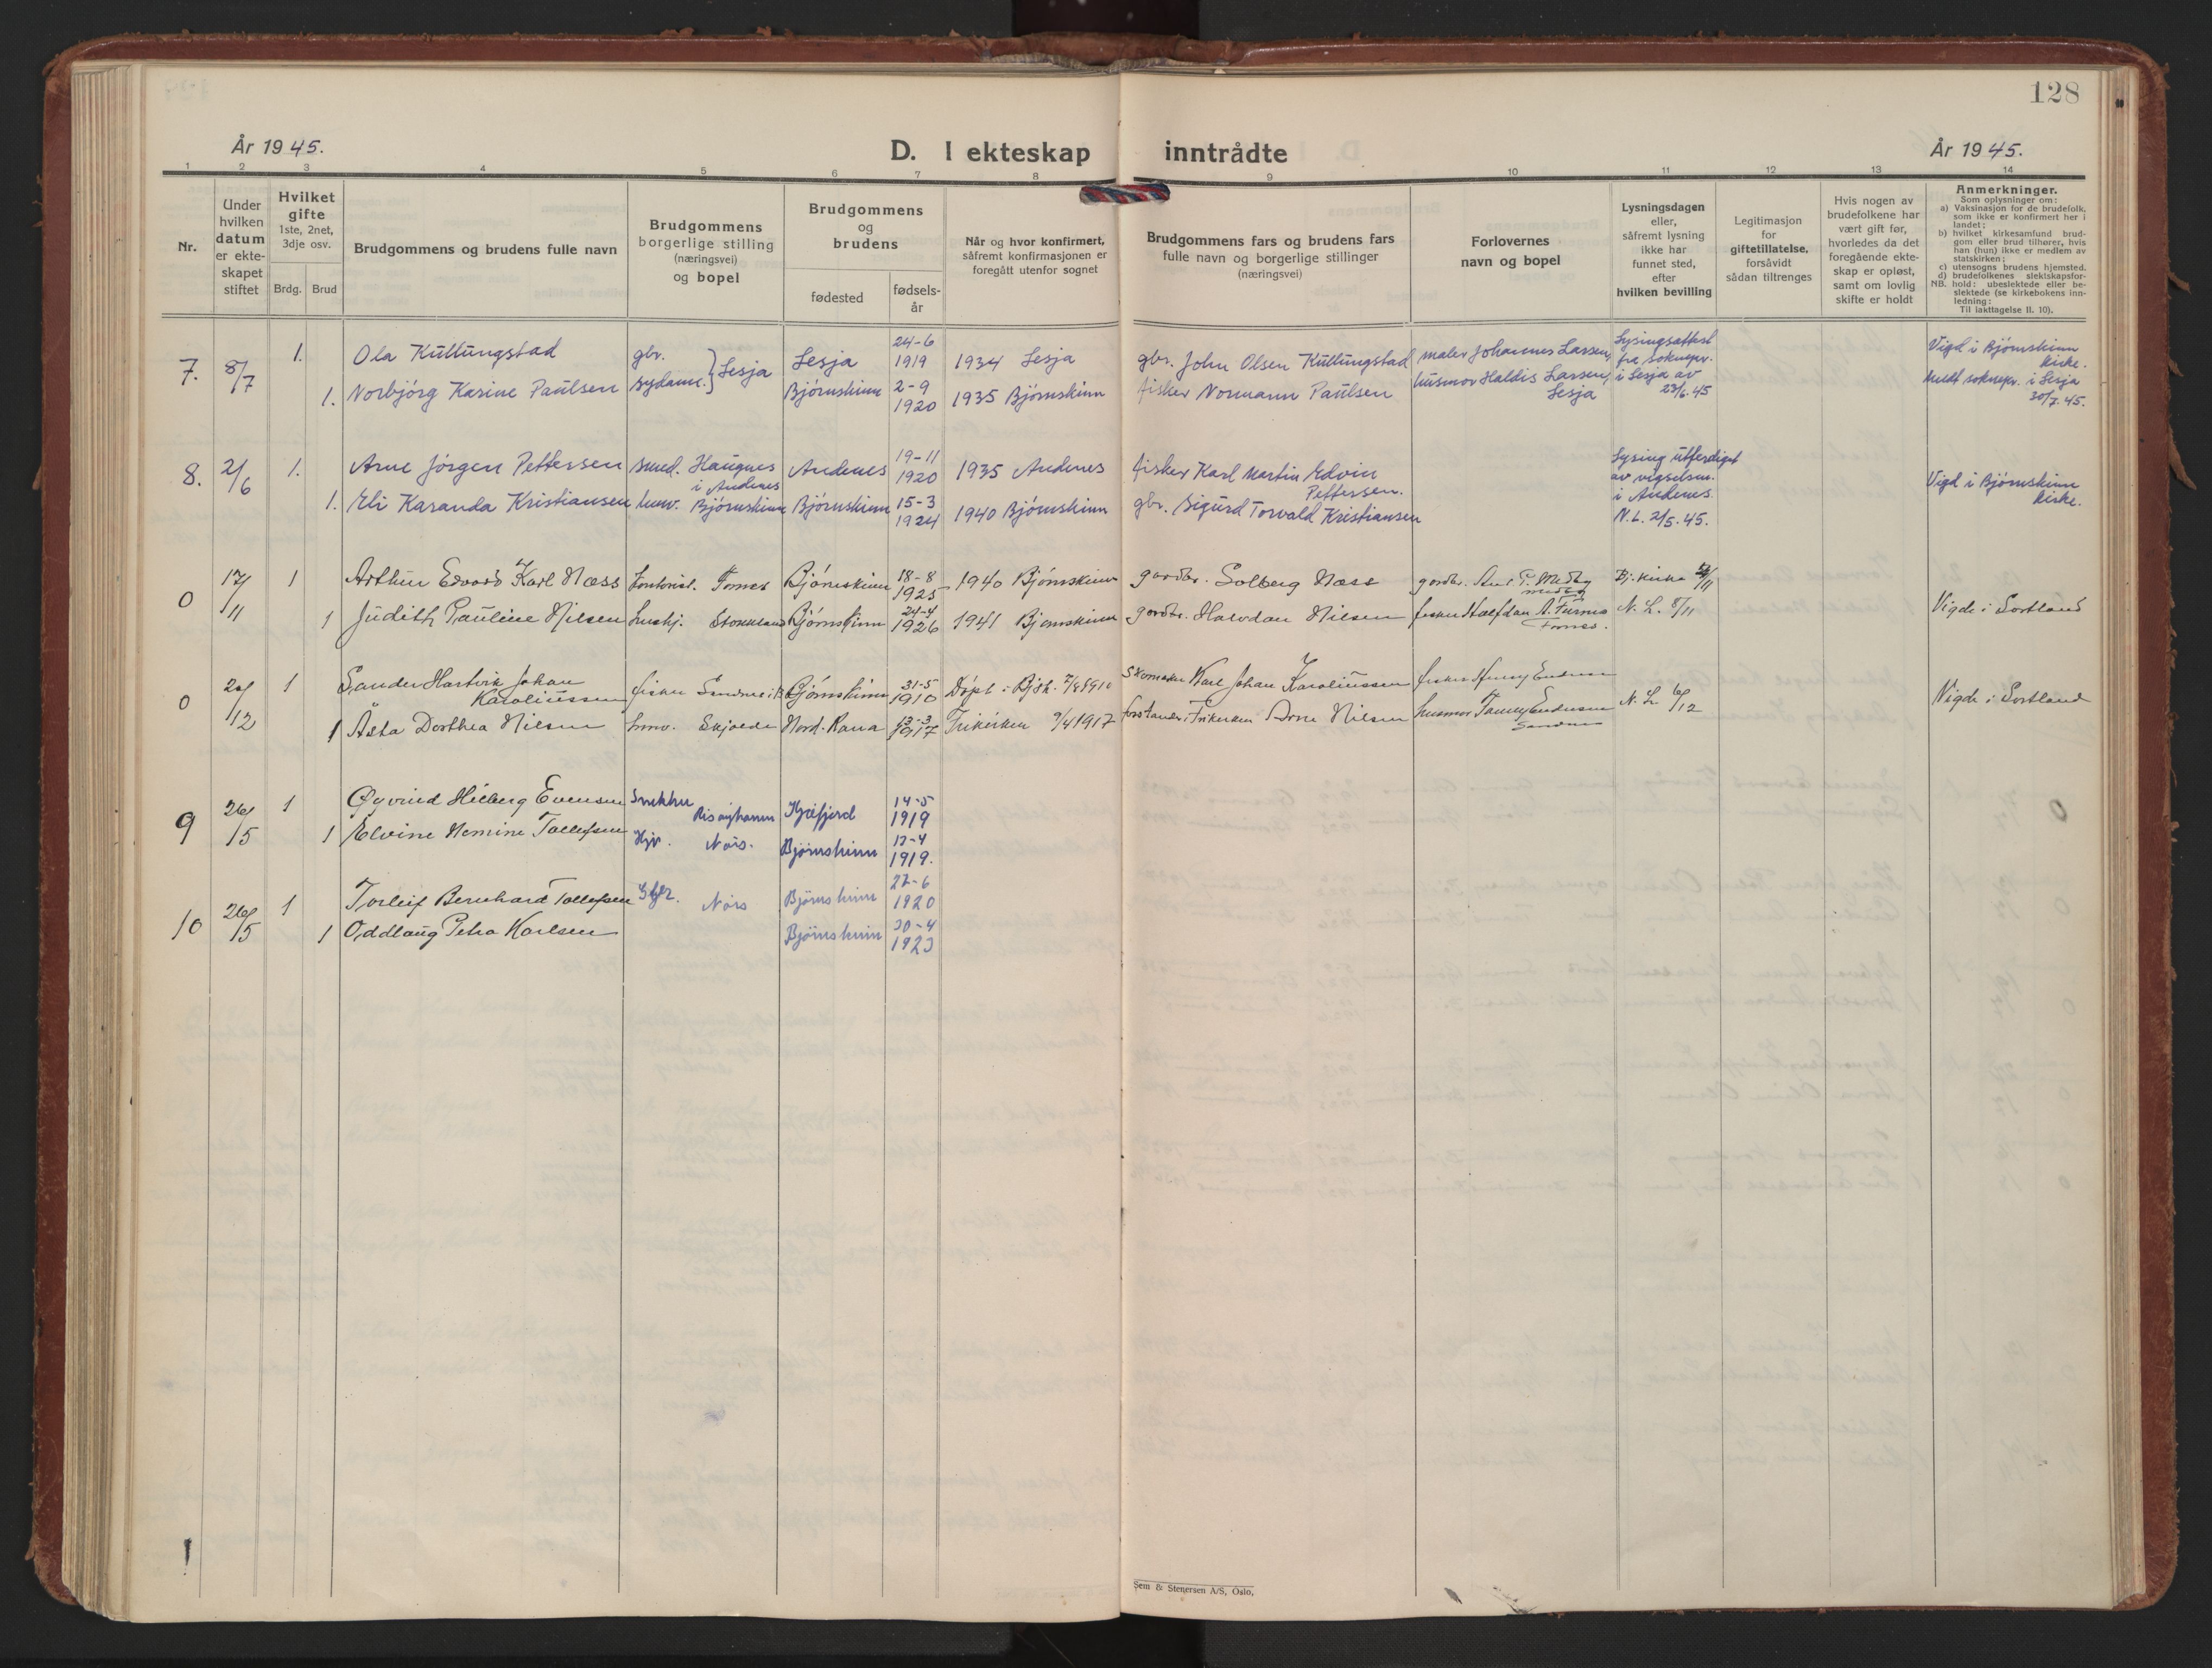 128
År 1945.
D. I ekteskap inntrådte
År 1945.
1 2 3 4 5 6 7 8 9 10 11 12 13 14
Nr.
Under
hvilken
datum
er ekte-
skapet
stiftet
Hvilket
gifte
1ste, 2net,
3dje osv.
Brdg. Brud
Brudgommens og brudens fulle navn
Brudgommens
borgerlige stilling
(næringsvei)
og bopel
Brudgommens
og
brudens
fødested
fødsels-
år
Når og hvor konfirmert,
såfremt konfirmasjonen er
foregått utenfor sognet
Brudgommens fars og brudens fars
fulle navn og borgerlige stillinger
(næringsvei)
Forlovernes
navn og bopel
Lysningsdagen
eller,
såfremt lysning
ikke har
funnet sted,
efter
hvilken bevilling
Legitimasjon
for
giftetillatelse,
forsåvidt
sådan tiltrenges
Hvis nogen av
brudefolkene har
vært gift før,
hvorledes da det
foregående ekte-
skap er opløst,
samt om lovlig
skifte er holdt
Anmerkninger.
Som oplysninger om:
a) Vaksinasjon for de brudefolk,
som ikke er konfirmert her i
landet;
b) hvilket kirkesamfund brud-
gom eller brud tilhører, hvis
han (hun) ikke er medlem av
statskirken;
c) utensogns brudens hjemsted.
d) brudefolkenes slektskapsfor-
NB. hold: ubeslektede eller be-
slektede (se kirkebokens inn-
ledning:
Til iakttagelse II. 10).
7. 8/7 1. Ola Kullungstad gbr. Lesja Lesja 24-6 1919 1934 Lesja gbr. John Olsen Kullungstad maler Johannes Larsen, Lysingsattest fra soknepr. Vigd i Bjørnskinn kirke.
1. Norbjörg Karine Paulsen sydame. Bjørnskinn 2-9 1920 1935 Bjørnskinn fisker Normann Paulsen husmor Haldis Larsen, Lesja i Lesja av 23/6.45 soknepr. i Lesja 30/7.45.
8. 2/6 1. Arne Jörgen Pettersen smed. Haugnes i Andenes Andenes 19-11 1920 1935 Andenes fisker Karl Martin Edvin Pettersen. Lysing utferdiget av vigselsm. Vigd i Bjørnskinn kirke.
1. Eli Karanda Kristiansen husv. Bjørnskinn Bjørnskinn 15-3 1924 1940 Bjørnskinn gbr. Sigurd Torvald Kristiansen i Andenes. N.L. 2/5.45.
0 17/11 1 Arthur Edvard Karl Næss Kontorist. Fornes Bjørnskinn 18-8 1925 1940 Bjørnskinn gardbr. Solberg Næss gardbr. P. Medby Bj. kirke
1 Judith Pauline Nilsen hushj. Stokkland Bjørnskinn 24-4 1926 1941 Bjørnskinn gardbr. Halvdan Nilsen fisker Halfdan A. Furnes Fornes. N.L. 8/11 Vigde i Sortland
0 1 Sander Hartvik Johan Karoliussen fisker Bjørnskinn 31-5 1910 Døpt i Bjsk. Skomaker Karl Johan Karoliussen fisker Henry
12 1 Åsta Dorthea Nilsen husv. Skjolde Nord-Rana 13-3 1917 Frikirken 9/4 1917 forstander i Frikirken Arne Nilsen husmor N.L. 6/12 Vigde i Sortland
9 26/5 1 Øyvind Hilberg Evensen Snekker Risøyhamn Kjøfjord 14-5 1919
1 Elvine Nomine Tollefsen Hjv. Nøis. Bjørnskinn 17-4 1919.
10 26/5 1 Torleif Bernhard Tollefsen Nøis Bjørnskinn 27-6 1920
1 Oddlaug Petra Karlsen Bjørnskinn 30-4 1923
Sem & Stenersen A/S, Oslo.